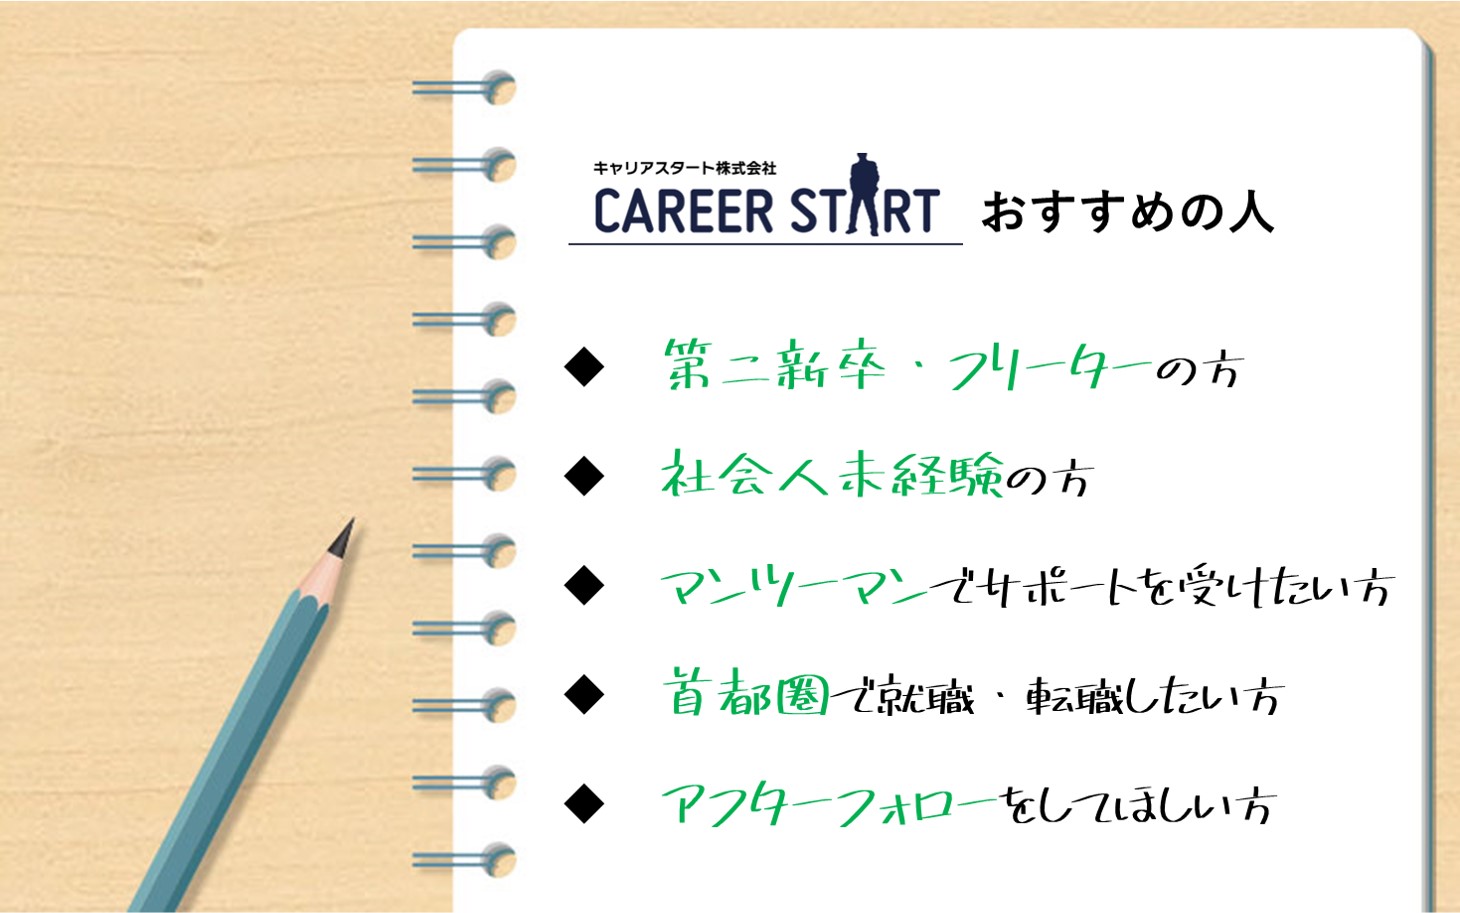 キャリアスタート株式会社
CAREER START おすすめの人
◆ 第二新卒・フリーターの方
◆ 社会人未経験の方
◆ マンツーマンでサポートを受けたい方
◆ 首都圏で就職・転職したい方
◆ アフターフォローをしてほしい方